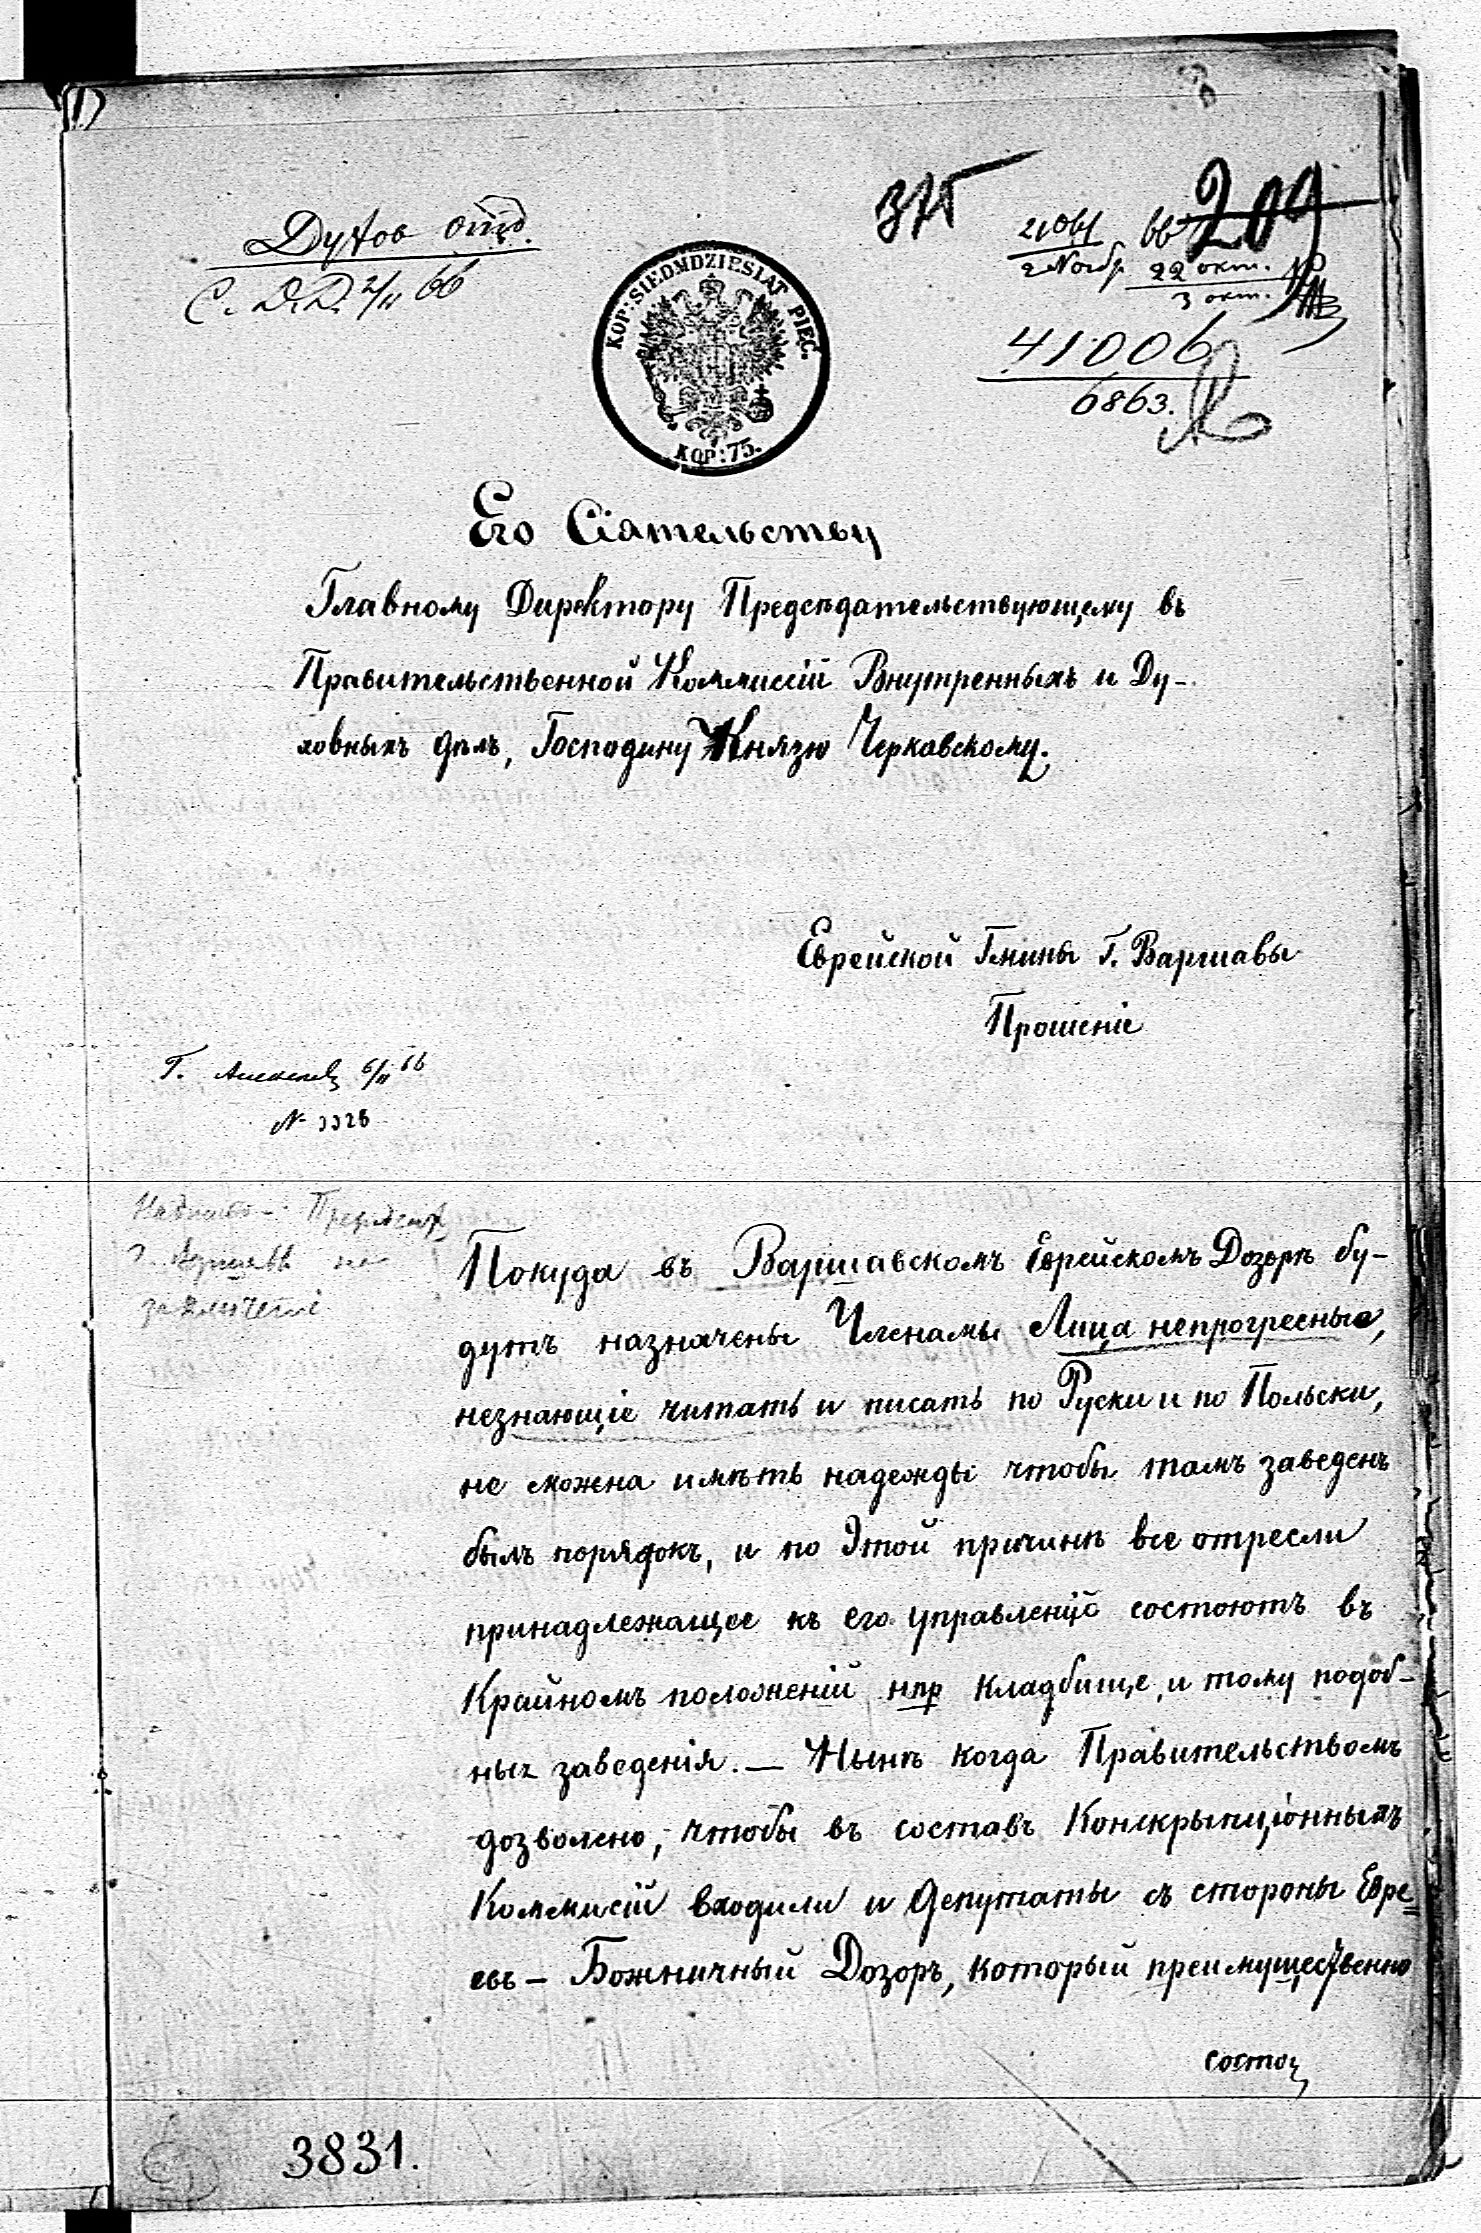 375
209
Духов отд.
С. Д. Д. 2/11 66
2 Ноябр 22 окт.
3 окт.
KOP: SIEDMDZIESIAT PIĘĆ.
KOP: 75.
41006
6863.
Его Сіятельству
Главному Директору Предсѣдательствующему въ
Правительственной Коммисіи Внутренныхъ и Ду-
ховныхъ дѣлъ, Господину Князю Черкавскому.
Еврейской Гмины Г. Варшавы
Прошеніе
Г. 6/11 66
N 3328
заключеніе
Покуда въ Варшавскомъ Еврейскомъ Дозорѣ бу-
дутъ назначены Членамы Лица непрогресные,
незнающіе читать и писать по Руски и по Польски,
не можна имѣть надежды чтобы тамъ заведенъ
былъ порядокъ, и по Этой причинѣ все отресли
принадлежащее къ его управленію состоютъ въ
Крайномъ положеніи нпр кладбище, и тому подоб-
ных заведенія. — Нынѣ когда Правительствомъ
дозволено, чтобы въ составъ Конскрыпціонныхъ
Коммисіи входили и Депутаты съ стороны Евре
евъ - Божничный Дозоръ, который преимущественно
состо
3831.